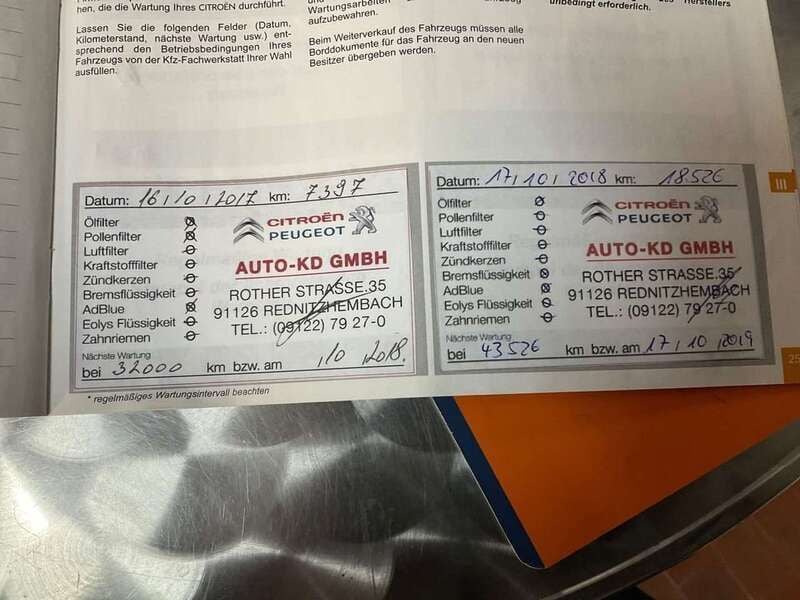 die die Wartung Ihres CITROËN durchführt.
Lassen Sie die folgenden Felder (Datum,
Kilometerstand, nächste Wartung usw.) ent-
sprechend den Betriebsbedingungen Ihres
Fahrzeugs von der Kfz-Fachwerkstatt Ihrer Wahl
ausfüllen.
Wartungsarbeiten
aufzubewahren.
Beim Weiterverkauf des Fahrzeugs müssen alle
Borddokumente für das Fahrzeug an den neuen
Besitzer übergeben werden.
des Herstellers
unbedingt erforderlich.
III
Datum: 16/10/2017 km: 7397
Ölfilter
Pollenfilter
Luftfilter
Kraftstofffilter
Zündkerzen
Bremsflüssigkeit
AdBlue
Eolys Flüssigkeit
Zahnriemen
CITROËN
PEUGEOT
AUTO-KD GMBH
ROTHER STRASSE.35
91126 REDNITZHEMBACH
TEL.: (09122) 79 27-0
Nächste Wartung
bei 32000 km bzw. am /10/2018.
* regelmäßiges Wartungsintervall beachten
Datum: 17/10/2018 km: 18526
Ölfilter
Pollenfilter
Luftfilter
Kraftstofffilter
Zündkerzen
Bremsflüssigkeit
AdBlue
Eolys Flüssigkeit
Zahnriemen
CITROËN
PEUGEOT
AUTO-KD GMBH
ROTHER STRASSE.35
91126 REDNITZHEMBACH
TEL.: (09122) 79 27-0
Nächste Wartung
bei 43526 km bzw. am 17/10/2019